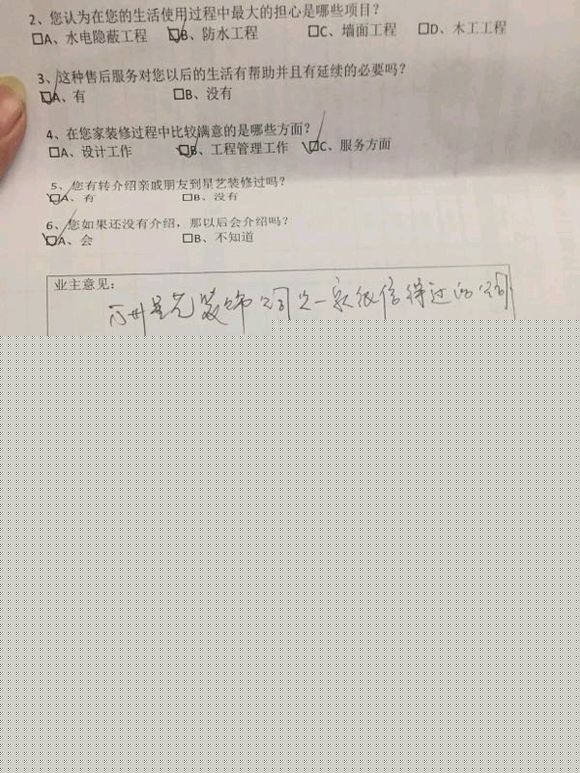 2、您认为在您的生活使用过程中最大的担心是哪些项目？
□A、水电隐蔽工程 □B、防水工程 □C、墙面工程 □D、木工工程
3、这种售后服务对您以后的生活有帮助并且有延续的必要吗？
□A、有 □B、没有
4、在您家装修过程中比较满意的是哪些方面？
□A、设计工作 □B、工程管理工作 □C、服务方面
5、您有转介绍亲戚朋友到星艺装修过吗？
□A、有 □B、没有
6、您如果还没有介绍，那以后会介绍吗？
□A、会 □B、不知道
业主意见：
装饰公司是一家很信得过的公司